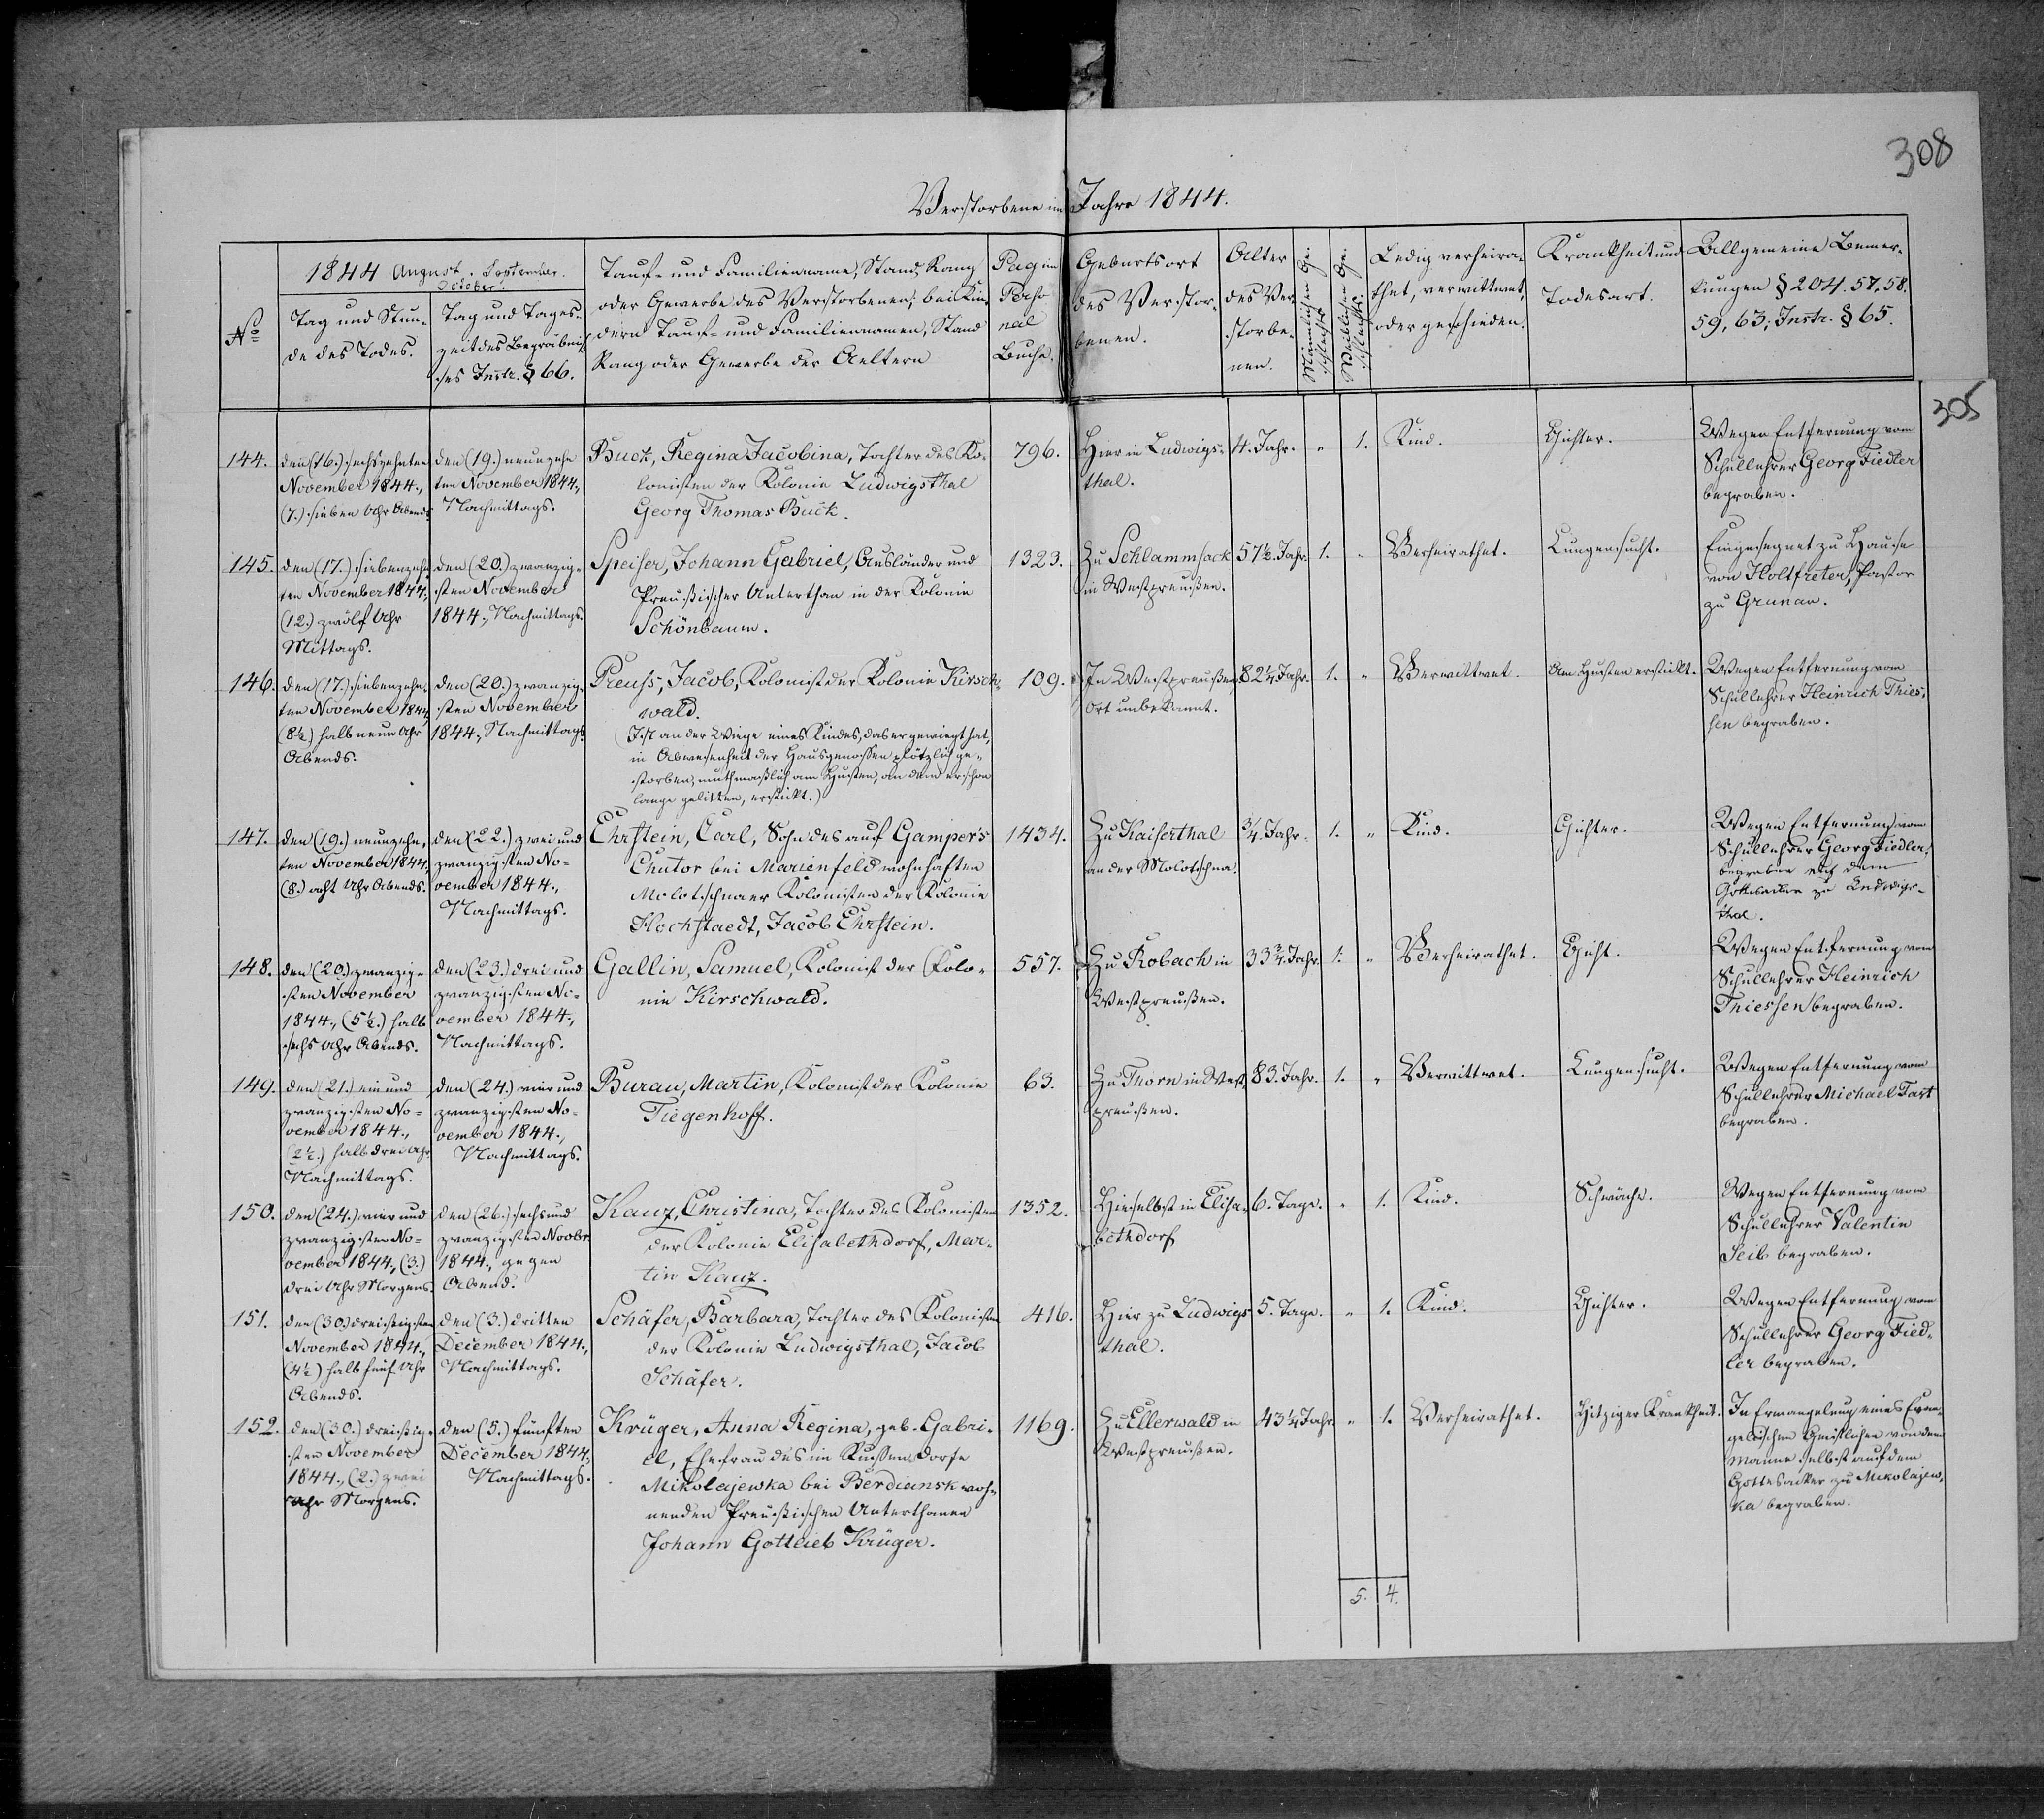 308
Verstorbene im Jahre 1844.
1844 August. September.
October.
No
Tag und Stun-
de des Todes.
Tag und Tages-
zeit des Begräbnis-
ses Instr. § 66.
Tauf- und Familienname, Stand, Rang
oder Gewerbe des Verstorbenen, bei Kin-
dern Tauf- und Familiennamen, Stand
Rang oder Gewerbe der Aeltern
Pag im
Perso
nal
Buche.
Geburtsort
des Verstor-
benen.
Alter
des Ver-
storbe-
nen.
Männlichen Ge-
schlechts
Weiblichen Ge-
schlechts.
Ledig verheira-
thet, verwittwet,
oder geschieden.
Krankheit und
Todesart.
Allgemeine Bemer-
kungen § 204. 57. 58.
59, 63, Instr. § 65.
305
144.
den (16.) sechszehnten
November 1844.,
(7.) sieben Uhr Abends.
den (19.) neunzehn
ten November 1844.,
Nachmittags.
Buck, Regina Jacobina, Tochter des Ko-
lonisten der Kolonie Ludwigsthal
Georg Thomas Buck.
796.
Hier in Ludwigs-
thal.
4. Jahr.
"
1.
Kind.
Gichter.
Wegen Entfernung vom
Schullehrer Georg Fiedler
begraben.
145.
den (17.) siebenzehn
ten November 1844.,
(12.) zwölf Uhr
Mittags.
den (20.) zwanzig-
sten November
1844., Nachmittags.
Speiser, Johann Gabriel, Ausländer und
Preußischer Unterthan in der Kolonie
Schönbaum.
1323.
Zu Schlammsack
in Westpreußen.
57½. Jahr.
1.
"
Verheirathet.
Lungensucht.
Eingesegnet zu Hause
von Holtfreter, Pastor
zu Grunau.
146.
den (17.) siebenzehn-
ten November 1844,
(8½) halb neun Uhr
Abends.
den (20.) zwanzig-
sten November
1844., Nachmittags.
Preuss, Jacob, Kolonist der Kolonie Kirsch-
wald.
(Ist an der Wiege eines Kindes, das er gewiegt hat,
in Abwesenheit der Hausgenossen plötzlich ge-
storben, muthmaßlich am Husten, an dem er schon
lange gelitten, erstickt.)
109.
In Westpreußen
Ort unbekannt.
82¼ Jahr.
1.
"
Verwittwet.
Am Husten erstickt.
Wegen Entfernung vom
Schullehrer Heinrich Thies-
sen begraben.
147.
den (19.) neunzehn-
ten November 1844,
(8.) acht Uhr Abends.
den (22.) zwei und
zwanzigsten No-
vember 1844.,
Nachmittags.
Ehrstein, Carl, Sohn des auf Gamper's
Chutor bei Marienfeld wohnhaften
Molotschnaer Kolonisten der Kolonie
Hochstaedt, Jacob Ehrstein.
1434.
Zu Kaiserthal
an der Molotschna.
¾. Jahr.
1.
"
Kind.
Gichter.
Wegen Entfernung vom
Schullehrer Georg Fiedler
begraben auf dem
Gottesacker zu Ludwigs-
thal.
148.
den (20.) zwanzig-
sten November
1844., (5½.) halb
sechs Uhr Abends.
den (23.) drei und
zwanzigsten No-
vember 1844.,
Nachmittags.
Gallin, Samuel, Kolonist der Kolo-
nie Kirschwald.
557.
Zu Robach in
Westpreußen.
33¾. Jahr.
1.
"
Verheirathet.
Gicht.
Wegen Entfernung vom
Schullehrer Heinrich
Thiessen begraben.
149.
den (21.) ein und
zwanzigsten No-
vember 1844.,
(2½.) halb drei Uhr
Nachmittags.
den (24.) vier und
zwanzigsten No-
vember 1844.,
Nachmittags.
Burau, Martin, Kolonist der Kolonie
Tiegenhoff.
63.
Zu Thorn in West-
preußen.
83. Jahr.
1.
"
Verwittwet.
Lungensucht.
Wegen Entfernung vom
Schullehrer Michael Fast
begraben.
150.
den (24.) vier und
zwanzigsten No-
vember 1844., (3.)
drei Uhr Morgens.
den (26.) sechs und
zwanzigsten Novbr.
1844., gegen
Abend.
Kauz, Christina, Tochter des Kolonisten
der Kolonie Elisabethdorf, Mar-
tin Kauz.
1352.
Hieselbst in Elisa-
bethdorf
6. Tage.
"
1.
Kind.
Schwäche.
Wegen Entfernung vom
Schullehrer Valentin
Seib begraben.
151.
den (30.) dreißigsten
November 1844.,
(4½) halb fünf Uhr
Abends.
den (3.) dritten
December 1844.,
Nachmittags.
Schäfer, Barbara, Tochter des Kolonisten
der Kolonie Ludwigsthal, Jacob
Schäfer.
416.
Hier zu Ludwigs
thal.
5. Tage.
"
1.
Kind.
Gichter.
Wegen Entfernung vom
Schullehrer Georg Fied-
ler begraben.
152.
den (30.) dreißig-
sten November
1844., (2.) zwei
Uhr Morgens.
den (5.) fünften
December 1844.,
Nachmittags.
Krüger, Anna Regina, geb. Gabri-
el, Ehefrau des im Russen Dorfe
Mikolajewka bei Berdiansk woh-
nenden Preußischen Unterthanen
Johann Gottlieb Krüger.
1169.
Zu Ellerwald in
Westpreußen.
43¼ Jahr.
"
1.
Verheirathet.
Hitziger Krankheit.
In Ermangelung eines Evan-
gelischen Geistlichen von dem
Manne selbst auf dem
Gottesacker zu Mikolajew-
ka begraben.
5.
4.